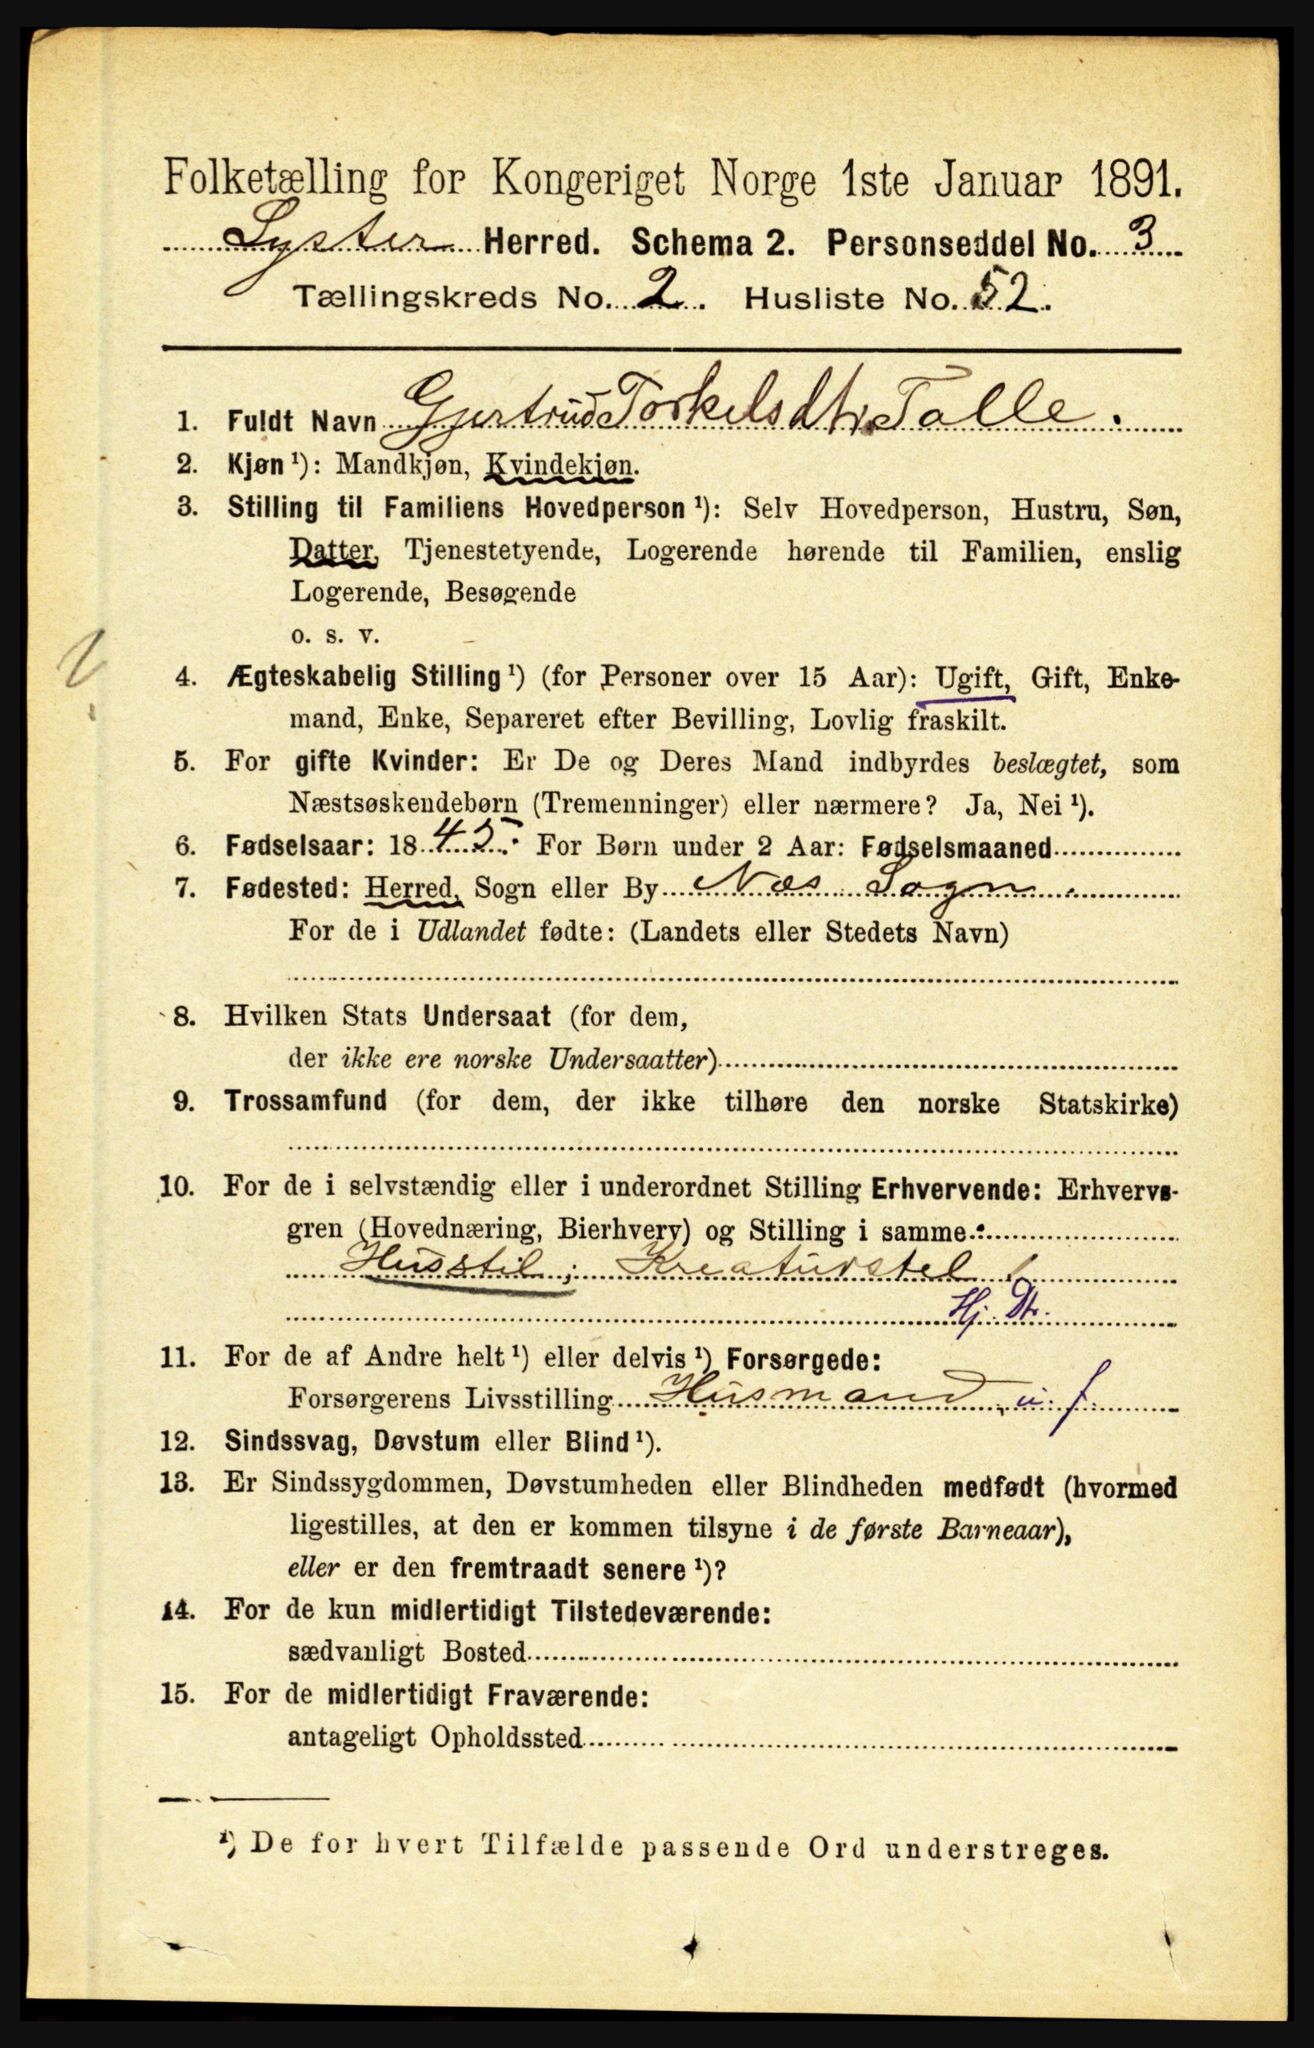 Folketælling for Kongeriget Norge 1ste Januar 1891.
Lyster Herred. Schema 2. Personseddel No. 3
Tællingskreds No. 2. Husliste No. 52.
1. Fuldt Navn Gjertrud Torkelsdtr. Talle.
2. Kjøn ¹): Mandkjøn, Kvindekjøn.
3. Stilling til Familiens Hovedperson ¹): Selv Hovedperson, Hustru, Søn,
Datter, Tjenestetyende, Logerende hørende til Familien, enslig
Logerende, Besøgende
o. s. v.
4. Ægteskabelig Stilling ¹) (for Personer over 15 Aar): Ugift, Gift, Enke-
mand, Enke, Separeret efter Bevilling, Lovlig fraskilt.
5. For gifte Kvinder: Er De og Deres Mand indbyrdes beslægtet, som
Næstsøskendebørn (Tremenninger) eller nærmere? Ja, Nei ¹).
6. Fødselsaar: 1845. For Børn under 2 Aar: Fødselsmaaned
7. Fødested: Herred, Sogn eller By Næs Sogn.
For de i Udlandet fødte: (Landets eller Stedets Navn)
8. Hvilken Stats Undersaat (for dem,
der ikke ere norske Undersaatter)
9. Trossamfund (for dem, der ikke tilhøre den norske Statskirke)
10. For de i selvstændig eller i underordnet Stilling Erhvervende: Erhvervs-
gren (Hovednæring, Bierhverv) og Stilling i samme:
Husstil; Kreaturstel
Hj. Dtr.
11. For de af Andre helt ¹) eller delvis ¹) Forsørgede:
Forsørgerens Livsstilling Husmand u. f.
12. Sindssvag, Døvstum eller Blind ¹).
13. Er Sindssygdommen, Døvstumheden eller Blindheden medfødt (hvormed
ligestilles, at den er kommen tilsyne i de første Barneaar),
eller er den fremtraadt senere ¹)?
14. For de kun midlertidigt Tilstedeværende:
sædvanligt Bosted
15. For de midlertidigt Fraværende:
antageligt Opholdssted
¹) De for hvert Tilfælde passende Ord understreges.